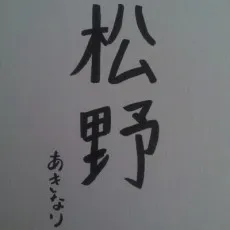 松野
あきなり